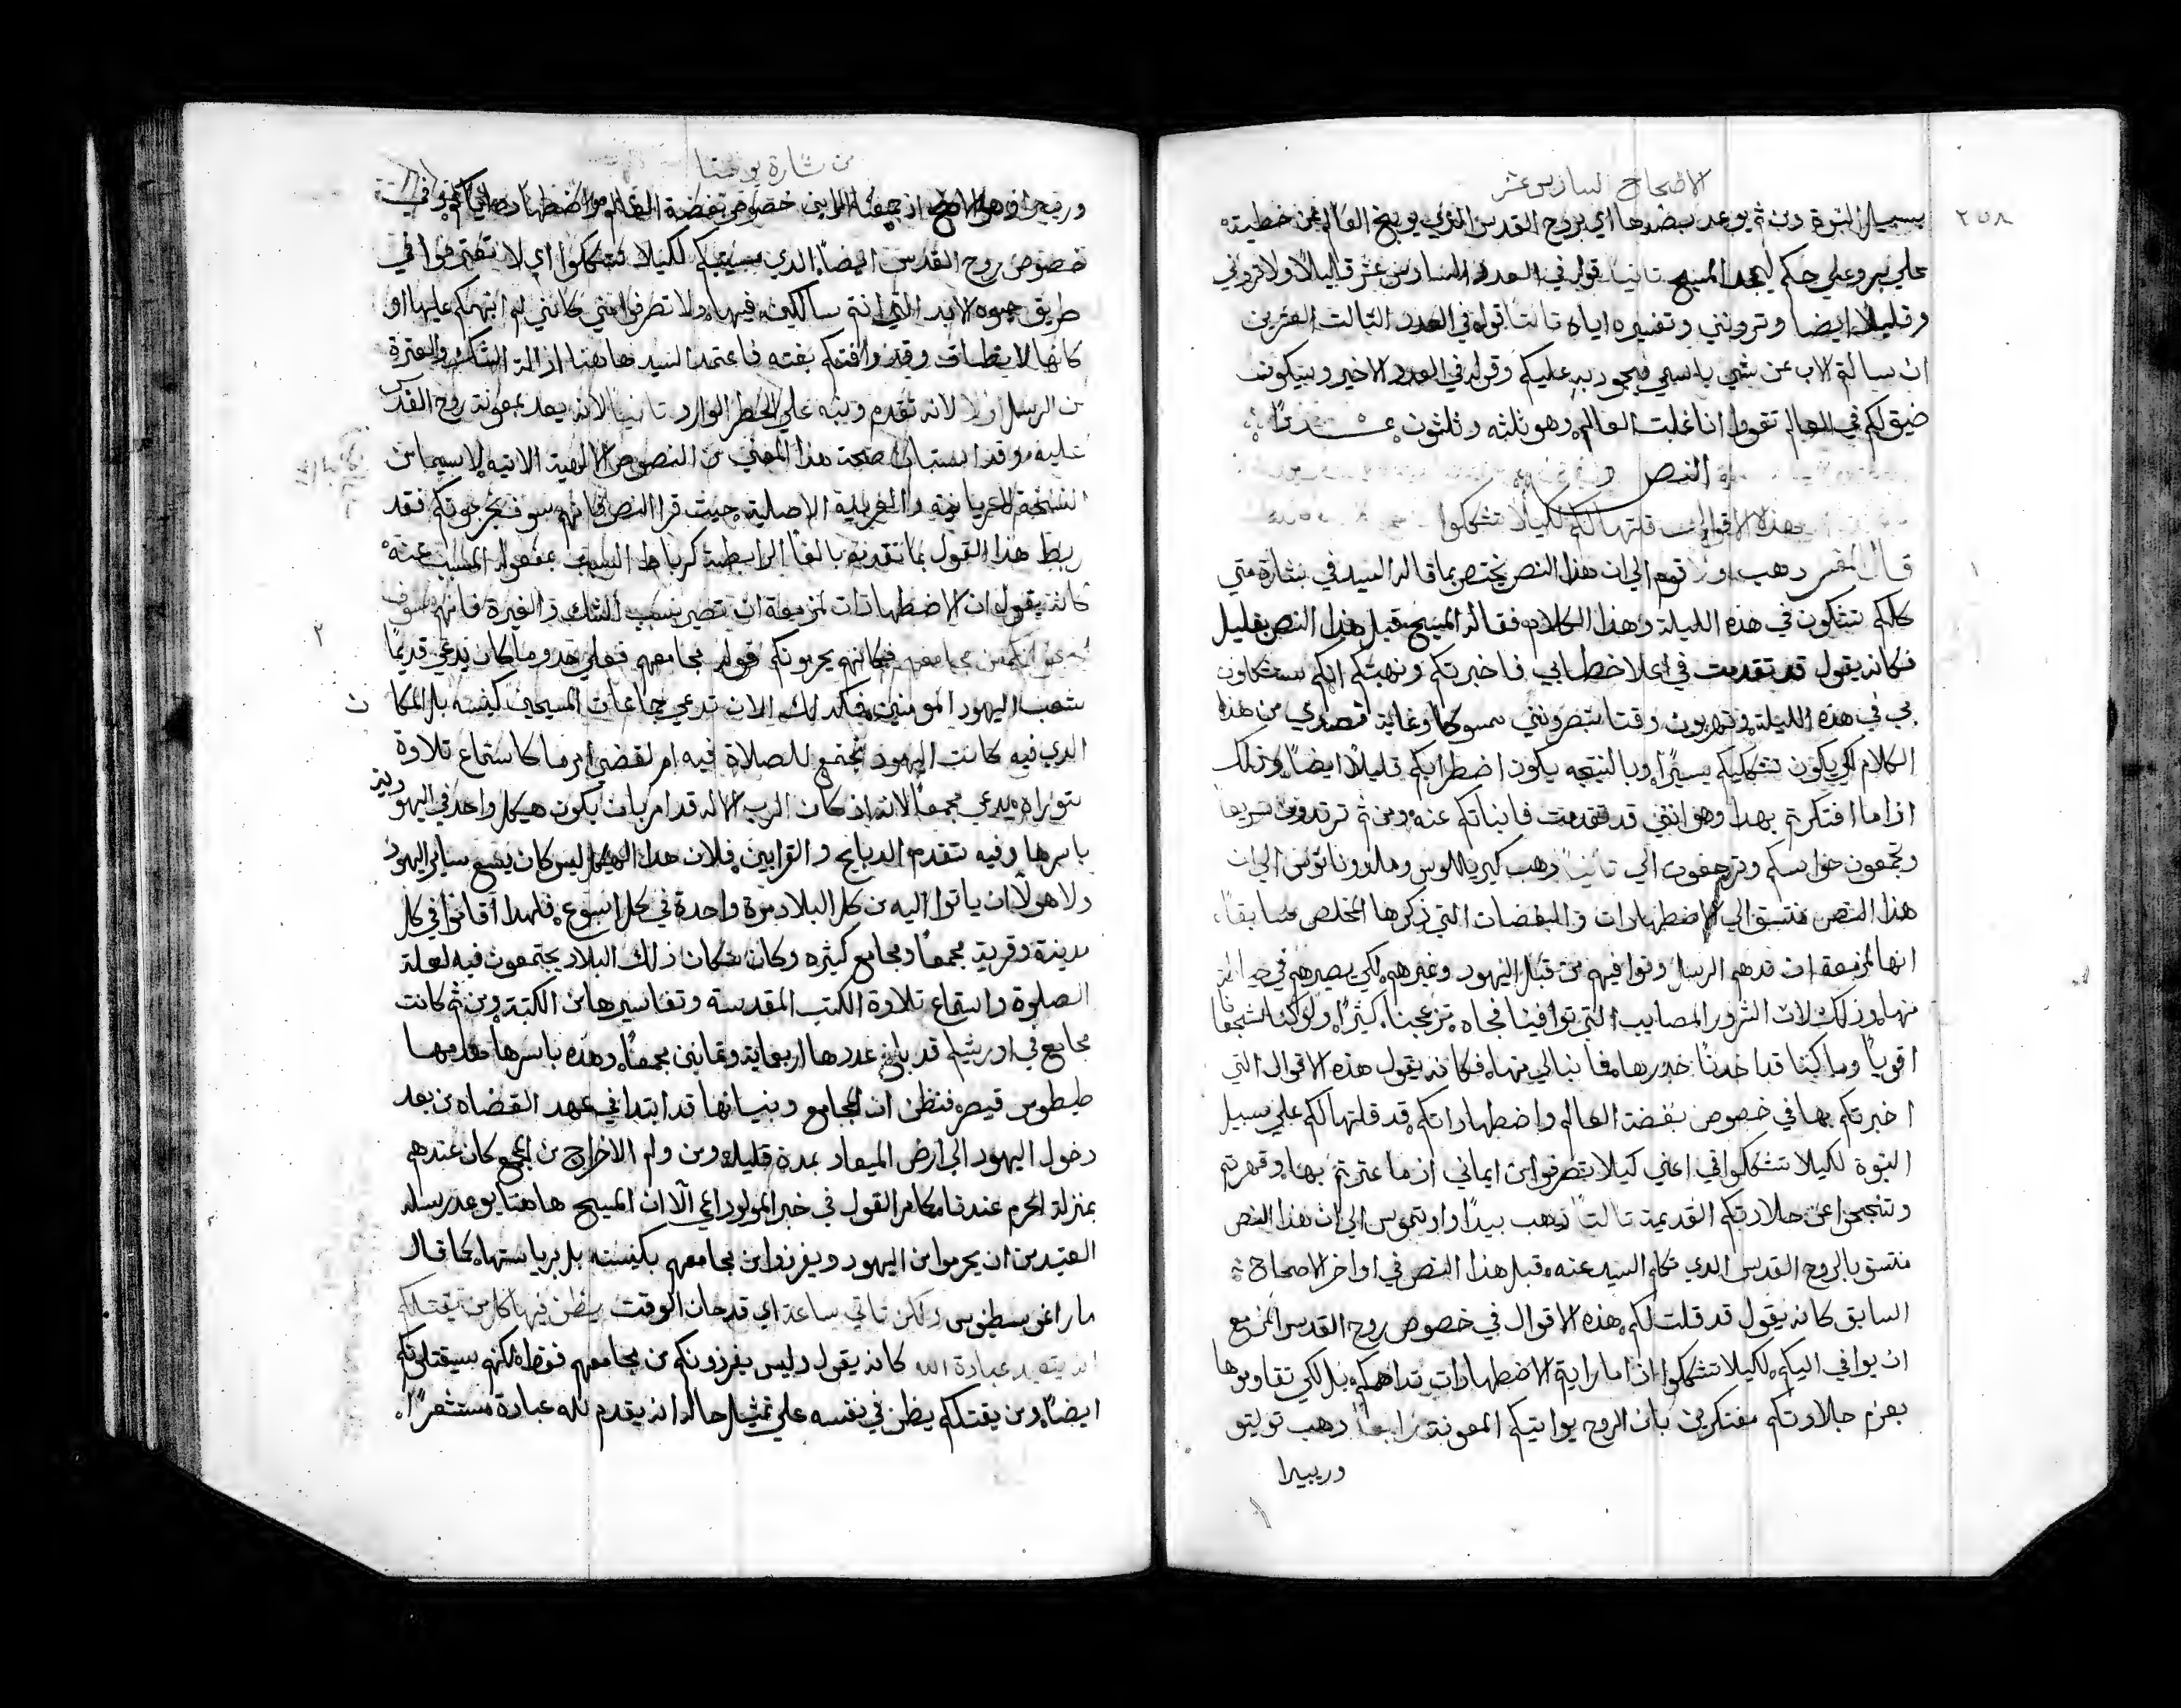 الاصحاح السادس عشر
٢٥٨
بسبيل النبوة ومن ثم يوعد بضدها اي بروح القدس الذي يوبخ العالم من خطيته
علي بر وعلي حكم ليمجد المسيح ثانيًا بقوله في العدد السادس عشر قليلًا ولا تروني
وقليلًا ايضا وترونني وتفسيره اياه ثالثًا قوله في العدد الثالث العشرين
ان سالتم الاب عن شي باسمي فيجود به عليكم وقوله في العدد الاخير وسيكون
ضيق لكم في العالم تقووا انا غلبت العالم وهو ثلثه وثلثون عددًا
النص
هذه الاقوال قلتها لكم لكيلا تشكوا
١
قال المفسر ذهب اولا قوم الي ان هذا النص يختص بما قاله السيد في بشارة متي
كلكم تشكون في هذه الليلة وهذا الكلام فقاله المسيح قبل هذا النص بقليل
فكانه يقول قد تقدمت في اعلا خطابي فاخبرتكم ونبهتكم انكم ستشكون
بي في هذه الليلة وتهربون وقتا تبصرونني ممسوكا وغاية قصدي من هذا
الكلام لكي يكون تشككم يسيرًا وبالنتيجه يكون اضطرابكم قليلًا ايضًا وذلك
اذا ما افتكرتم بهذا وهو انني قد تقدمت فانباتكم عنه ومن ثم ترتدون سريعًا
وتجمعون حواسكم وترجعون الي ثانيًا ذهب كيريللوس وملدوناتوس الي ان
هذا النص متسق الي الاضطهادات والبغضات التي ذكرها المخلص سابقًا
انها المزمعة ان تدهم الرسل وتوافيهم من قبل اليهود وغيرهم لكي يصيرهم في
منها وذلك لان الشرور المصايب التي توافينا فجاه تزعجنا كثيرًا ولو كنا شجعانا
اقويا وما كنا قد اخدنا حذرها فما نبالي منها فكانه يقول هذه الاقوال التي
اخبرتكم بها في خصوص بغضة العالم واضطهاداتكم قد قلتها لكم علي سبيل
النبوة لكيلا تشكوا في اعني كيلا تصرفوا من ايماني اذ ما عثرتم بها وقهرتم
وتنجحوا عن جلادتكم القديمة ثالثًا ذهب بيدًا واوتيموس الي ان هذا النص
متسق بالروح القدس الذي تكلم السيد عنه قبل هذا النص في اواخر الاصحاح
السابق كانه يقول قد قلت لكم هذه الاقوال في خصوص روح القدس المزمع
ان يوافي اليكم لكيلا تشكوا اذا ما رايتم الاضطهادات تداهمكم بل لكي تقاوموها
بعزم جلادتكم مفتكرين بان الروح يواتيكم المعونة رابعًا ذهب توليتو
وريبيرا
من بشارة يوحنا
وريبيرا وهو الاصح ان جميعه المراد في خصوص بغضة العالم واضطهاده اياكم وفي
خصوص روح القدس ايضًا الذي يسليكم لكيلا تشكوا اي لا تعثروا في
طريق حيوه الابد التي انتم سالكين فيها ولا تصرفوا عني كانني لم انبهكم عليها او
كانها لا تطاق وقد وافتكم بغته فاعتمد السيد هاهنا ازالة الشك والعثرة
من الرسل اولا لانه تقدم ونبه علي الخطر الوارد ثانيًا لانه يعد بمعونة روح القدس
عليه وقد استبان صحة هذا المعني من النصوص الالهية الاتيه لاسيما من
النسخة السريانية والعربية الاصلية حيث قرا النص فانهم سوف يخرجونكم فقد
ربط هذا القول بما تقدمه بالفا الرابطة كرباط السبب بمفعول المسبب عنه
كانه يقول ان الاضطهادات المزمعة ان تصير بسبب الشك والغيرة فانهم سوف
٢
يخرجونكم من مجامعهم فكانهم يحرمونكم قوله مجامعهم فعلي حدو ما كان يدعي قديمًا
شعب اليهود المومنين فكذلك الان تدعي جماعات المسيحيين كنيسه بل المكان
الذي فيه كانت اليهود تجتمع للصلاة فيه ام لقضي امر ما كاستماع تلاوة
توراه يدعي مجمعًا لانه ان كان الرب الاله قد امر بان يكون هيكل واحد في اليهودية
باسرها وفيه تتقدم الدبايح والقرابين فلان هذا الهيكل ليس كان يسع ساير اليهود
ولا هولا ان ياتوا اليه من كل البلاد مرة واحدة في كل اسبوع فلهدا اقاموا في كل
مدينة وقرية مجمعًا ومجامع كثيره وكان سكان ذلك البلاد يجتمعون فيه لعلة
الصلوة واستماع تلاوة الكتب المقدسة وتفاسيرها من الكتبة ومن ثم كانت
مجامع في اورشليم قد بلغ عددها اربعماية وثمانين مجمعًا وهذه باسرها هدمها
طيطوس قيصر فنظن ان المجامع وبنيانها قد ابتدا في عهد القضاه من بعد
دخول اليهود الي ارض الميعاد بمدة قليلة ومن ولم الاخراج من المجمع كان عندهم
بمنزلة الحرم عندنا كما مر القول في خبر المولود اعمي الا ان المسيح هاهنا يوعد رسله
العتيدين ان يحرموا من اليهود ويفرزوا من مجامعهم بكنيسته بل برياستها كما قال
ماراغوسطينوس ولكن تاتي ساعة اي قد حان الوقت يظن فيها كل من يقتلكم
انه يتعبد عبادة الله كانه يقول وليس يفرزونكم من مجامعهم فقط لكنهم سيقتلونكم
ايضًا ومن يقتلكم يظن في نفسه علي تمثيل حاله انه يقدم لله عبادة مستثمرًا